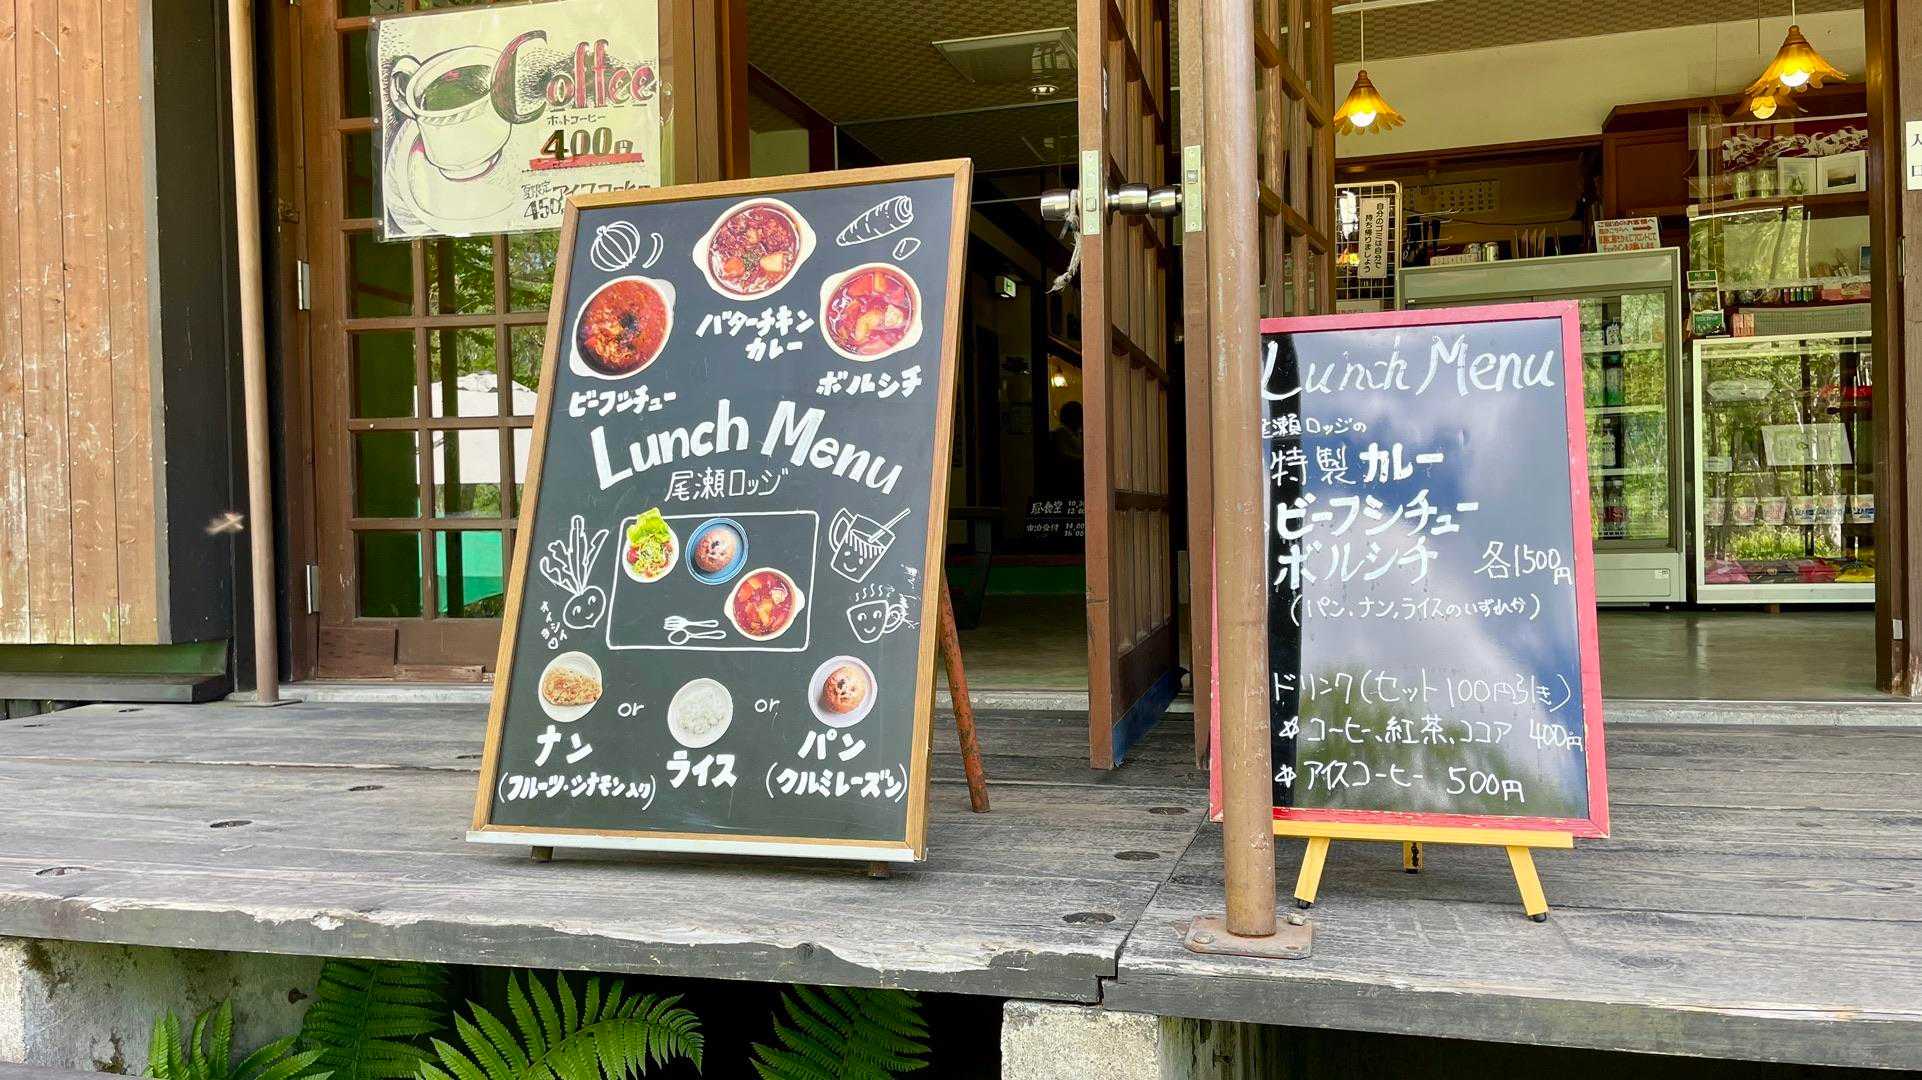 Coffee
ホットコーヒー
400円
夏限定 アイスコーヒー
450
バターチキン
カレー
ビーフシチュー
ボルシチ
Lunch Menu
尾瀬ロッジ
オイシイ
ヨ
or
or
ナン
(フルーツ・シナモン入り)
ライス
パン
(クルミレーズン)
自分のゴミは自分で
持ち帰りましょう
Lunch Menu
尾瀬ロッジの
特製カレー
ビーフシチュー
ボルシチ 各1500円
(パン、ナン、ライスのいずれか)
ドリンク(セット100円引き)
コーヒー、紅茶、ココア 400円
アイスコーヒー 500円